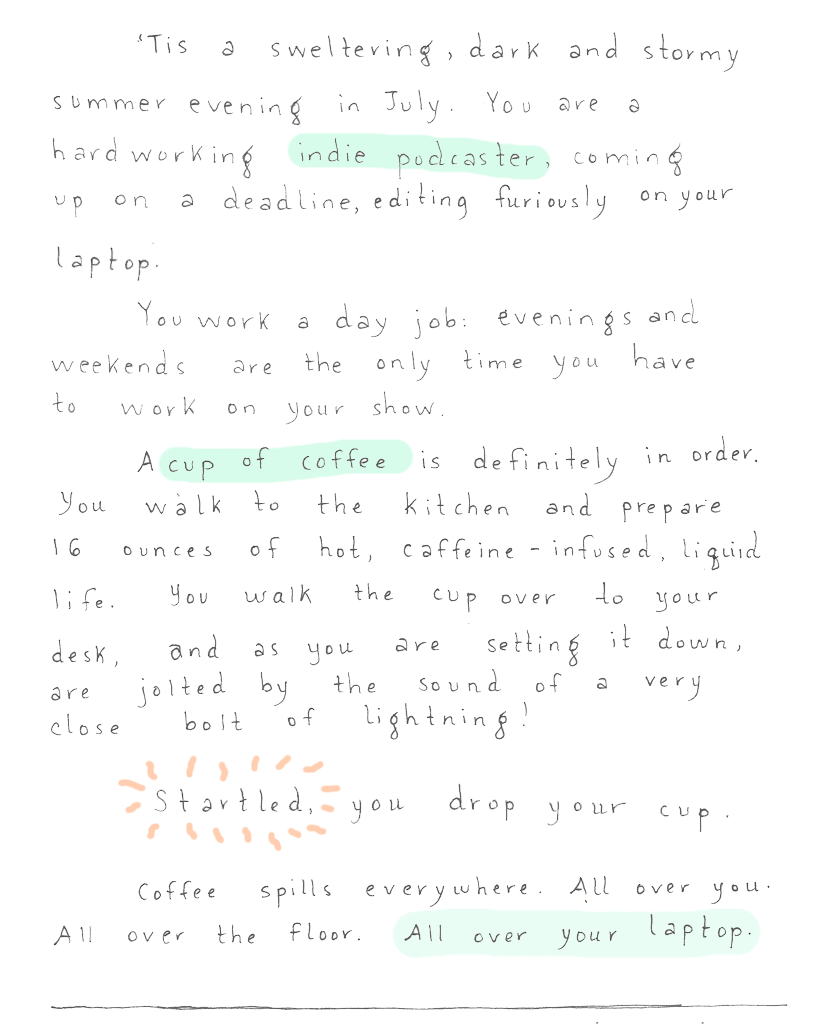 'Tis a sweltering, dark and stormy
summer evening in July. You are a
hardworking indie podcaster, coming
up on a deadline, editing furiously on your
laptop.
You work a day job: evenings and
weekends are the only time you have
to work on your show.
A cup of coffee is definitely in order.
You walk to the kitchen and prepare
16 ounces of hot, caffeine-infused, liquid
life. You walk the cup over to your
desk, and as you are setting it down,
are jolted by the sound of a very
close bolt of lightning!
Startled, you drop your cup.
Coffee spills everywhere. All over you.
All over the floor. All over your laptop.